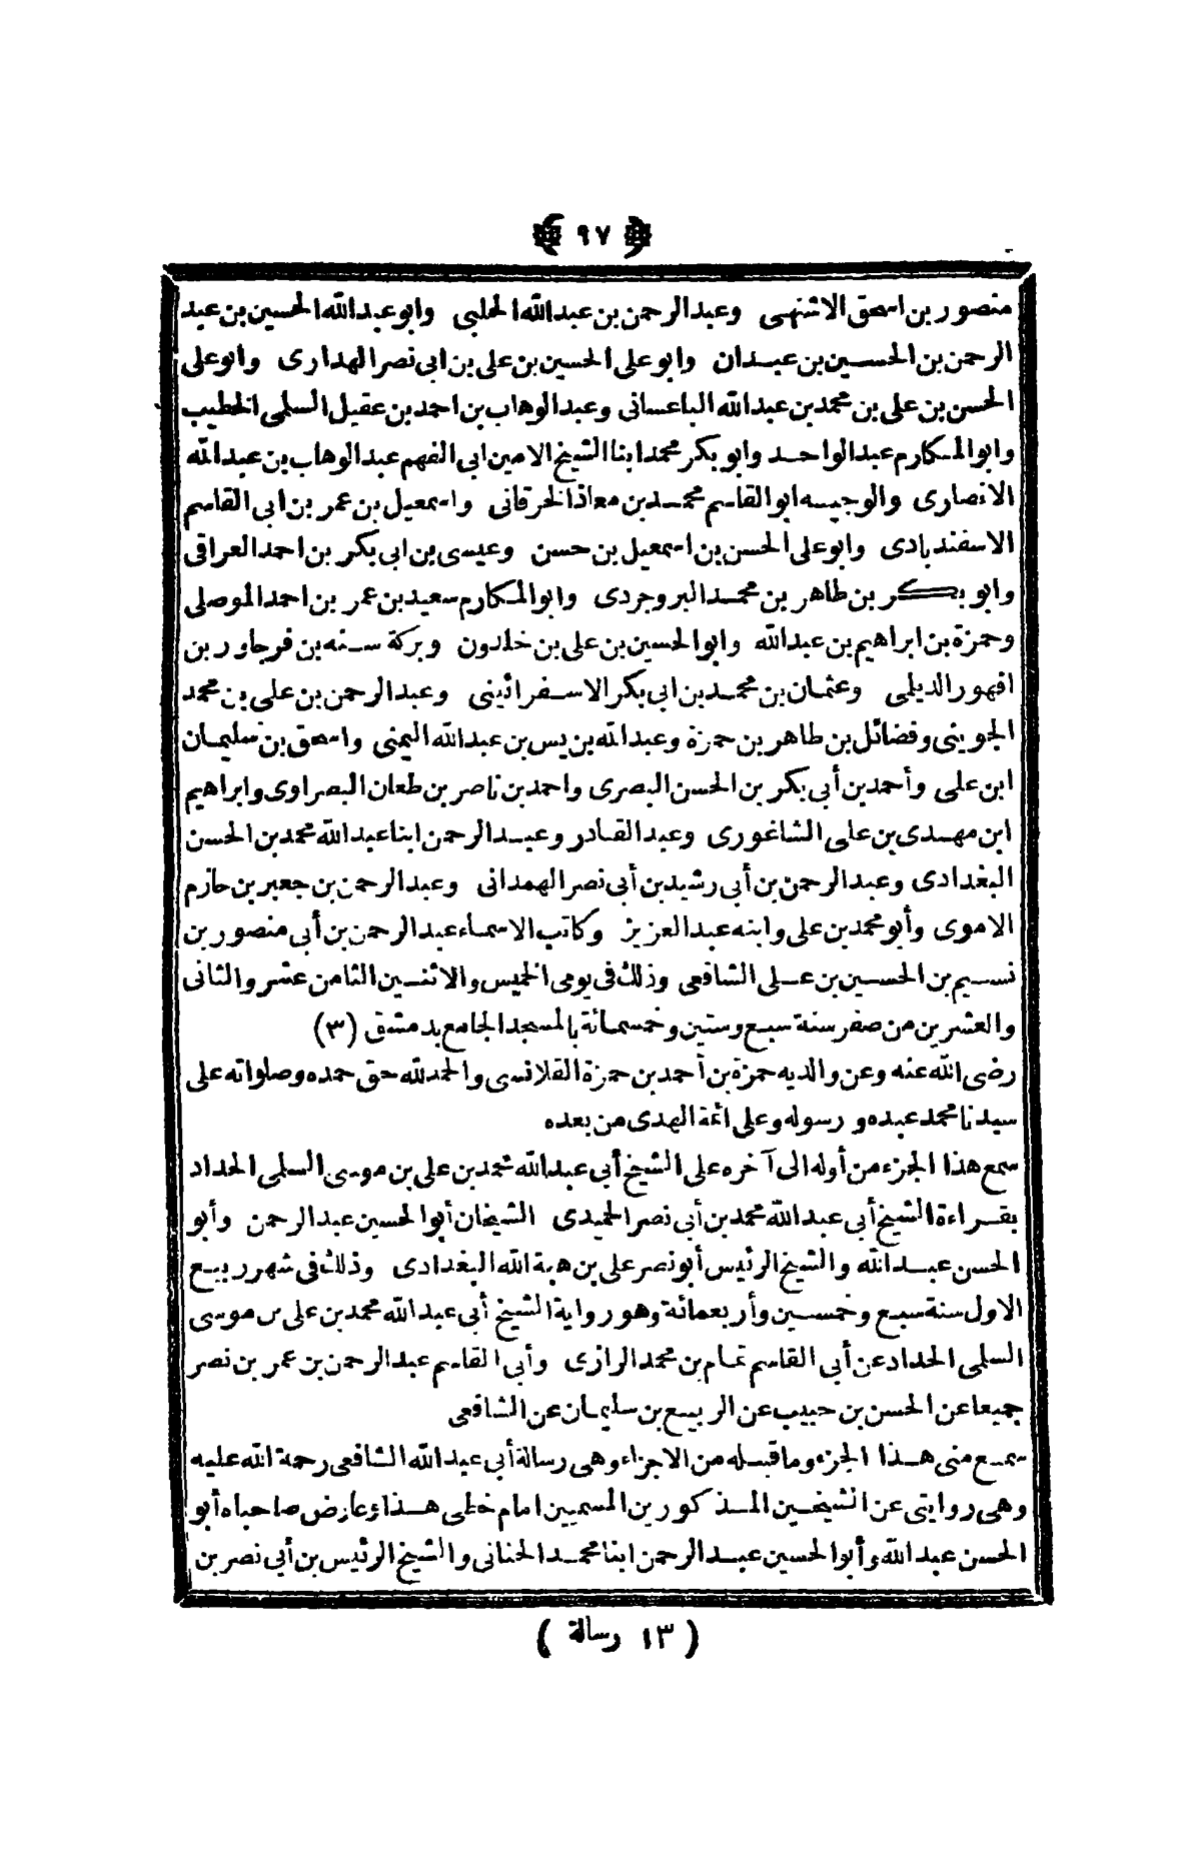 ﴿ ٩٧ ﴾
منصور بن اسحق الاشنهى وعبد الرحمن بن عبد الله الحلبى وابو عبد الله الحسين بن عبد
الرحمن بن الحسين بن عبدان وابو على الحسين بن على بن ابى نصر الهدارى وابو على
الحسن بن على بن محمد بن عبد الله الباعسانى وعبد الوهاب بن احمد بن عقيل السلمى الخطيب
وابو المكارم عبد الواحد وابو بكر محمد ابنا الشيخ الامين ابى الفهم عبد الوهاب بن عبد الله
الانصارى والوجيه ابو القاسم محمد بن معاذ الخرقانى واسمعيل بن عمر بن ابى القاسم
الاسفندبادى وابو على الحسن بن اسمعيل بن حسن وعيسى بن ابى بكر بن احمد العراقى
وابو بكر بن طاهر بن محمد البروجردى وابو المكارم سعيد بن عمر بن احمد الموصلى
وحمزة بن ابراهيم بن عبد الله وابو الحسين بن على بن خلدون وبركة سنه بن فرجاور بن
افهور الديلمى وعثمان بن محمد بن ابى بكر الاسفرائينى وعبد الرحمن بن على بن محمد
الجوينى وفضائل بن طاهر بن حمزة وعبد الله بن يس بن عبد الله اليمنى واسحق بن سليمان
ابن على وأحمد بن أبى بكر بن الحسن البصرى واحمد بن ناصر بن طعان البصراوى وابراهيم
ابن مهدى بن على الشاغورى وعبد القادر وعبد الرحمن ابنا عبد الله محمد بن الحسن
البغدادى وعبد الرحمن بن أبى رشيد بن أبى نصر الهمدانى وعبد الرحمن بن جعبر بن حازم
الاموى وأبو محمد بن على وابنه عبد العزيز وكاتب الاسماء عبد الرحمن بن أبى منصور بن
نسيم بن الحسين بن على الشافعى وذلك فى يومى الخميس والاثنين الثامن عشر والثانى
والعشرين من صفر سنة سبع وستين وخمسمائة بالمسجد الجامع بدمشق (٣)
رضى الله عنه وعن والديه حمزة بن أحمد بن حمزة القلانسى والحمد لله حق حمده وصلواته على
سيدنا محمد عبده ورسوله وعلى ائمة الهدى من بعده
سمع هذا الجزء من أوله الى آخره على الشيخ أبى عبد الله محمد بن على بن موسى السلمى الحداد
بقراءة الشيخ أبى عبد الله محمد بن أبى نصر الحميدى الشيخان أبو الحسين عبد الرحمن وأبو
الحسن عبد الله والشيخ الرئيس أبو نصر على بن هبة الله البغدادى وذلك فى شهر ربيع
الاول سنة سبع وخمسين وأربعمائة وهو رواية الشيخ أبى عبد الله محمد بن على بن موسى
السلمى الحداد عن أبى القاسم تمام بن محمد الرازى وأبى القاسم عبد الرحمن بن عمر بن نصر
جميعا عن الحسن بن حبيب عن الربيع بن سليمان عن الشافعى
سمع منى هذا الجزء وما قبله من الاجزاء وهى رسالة أبى عبد الله الشافعى رحمة الله عليه
وهى روايتى عن الشيخين المذكورين المسميين امام خطى هذا وعارض صاحباه أبو
الحسن عبد الله وأبو الحسين عبد الرحمن ابنا محمد الحنانى والشيخ الرئيس بن أبى نصر بن
( ١٣ رسالة )